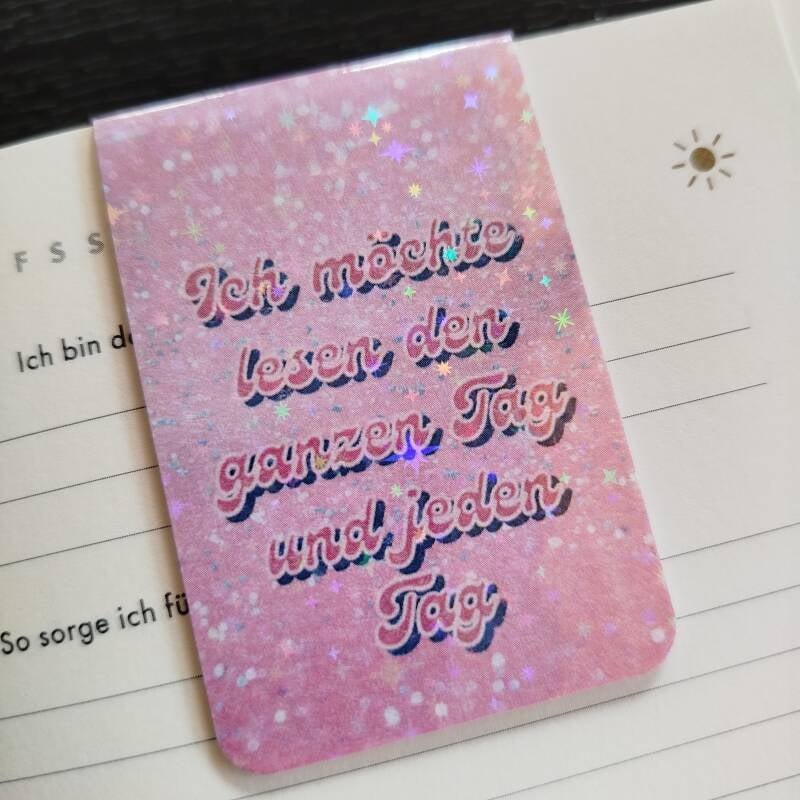 F S S
Ich möchte
Ich bin
lesen den
ganzen Tag
und jeden
Tag
So sorge ich